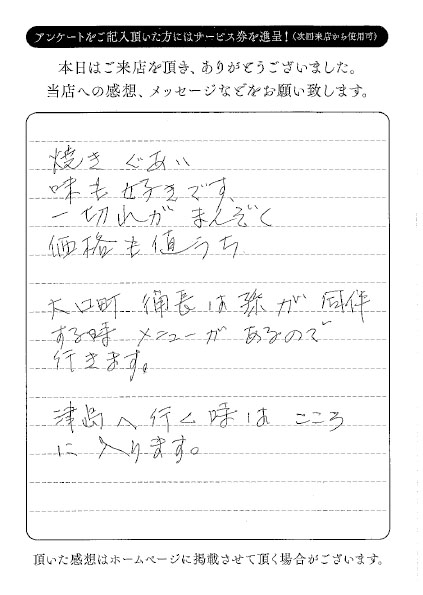 アンケートをご記入頂いた方にはサービス券を進呈！(次回来店から使用可)
本日はご来店を頂き、ありがとうございました。
当店への感想、メッセージなどをお願い致します。
焼き ぐあい
味も 好きです、
一切れが まんぞく
価格も値うち
大口町 備長は孫が 同伴
する時 メニューが あるので
行きます。
津島へ行く時は こころ
に 入ります。
頂いた感想はホームページに掲載させて頂く場合がございます。